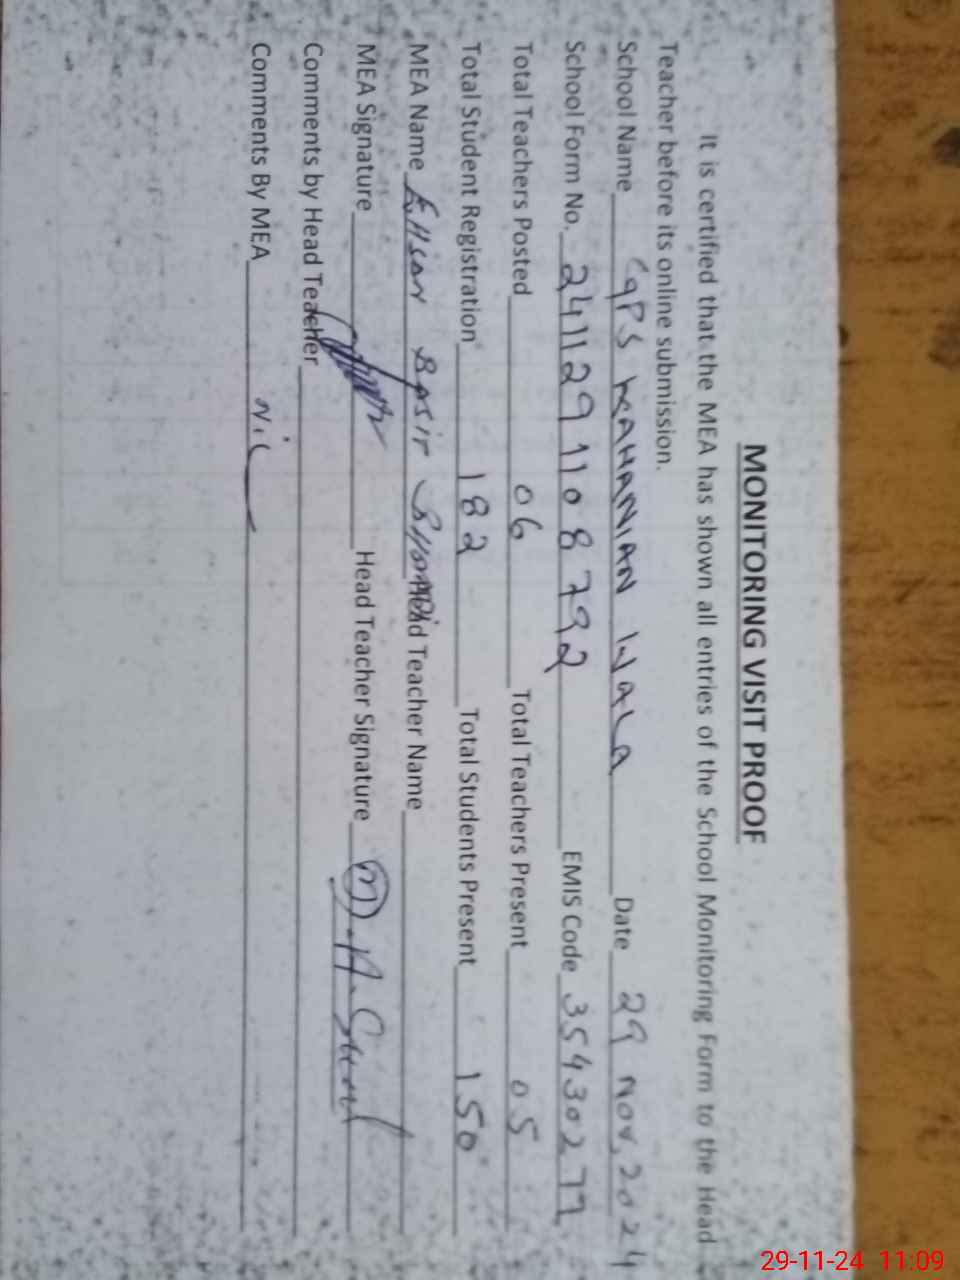 MONITORING VISIT PROOF
It is certified that the MEA has shown all entries of the School Monitoring Form to the Head
Teacher before its online submission.
School Name GPS MAHANIAN WALA Date 29 Nov, 2024
School Form No. 2411291108792 EMIS Code 35430277
Total Teachers Posted 06 Total Teachers Present 05
Total Student Registration 182 Total Students Present 150
MEA Name Ehsan Basit Head Teacher Name
MEA Signature Head Teacher Signature
Comments by Head Teacher
Comments By MEA Nil
29-11-24 11:09